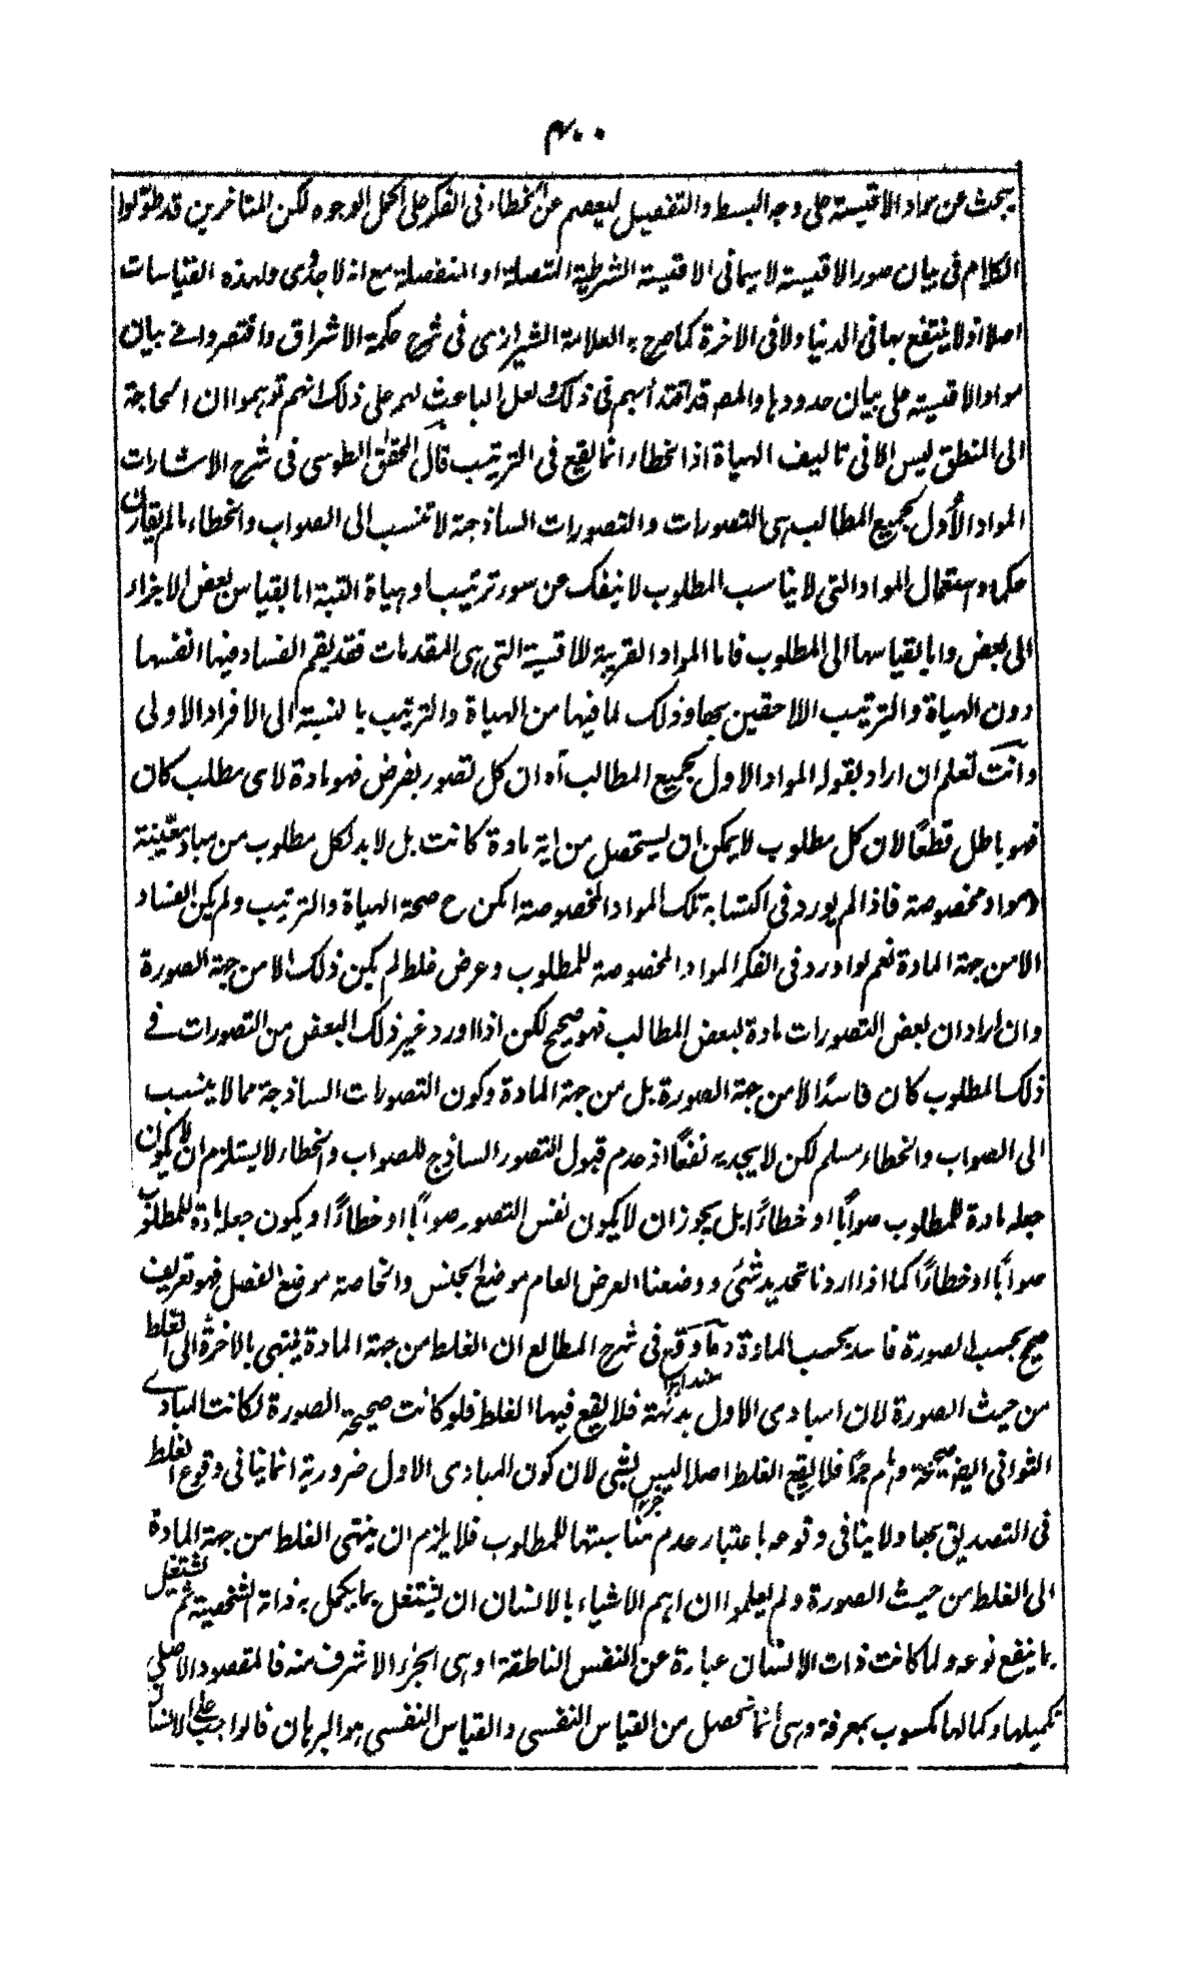 ٤٠٠
يبحث عن مواد الاقيسة على وجه البسط والتفصيل ليعصم عن الخطاء فى الفكر على اكمل الوجوه لكن المتاخرين قد طوّلوا
الكلام فى بيان صور الاقيسة لا سيما فى الاقيسة الشرطية المتصلة او المنفصلة مع انه لا جدوى لهذه القياسات
اصلا ولا ينتفع بها فى الدنيا ولا فى الاخرة كما صرح به العلامة الشيرازى فى شرح حكمة الاشراق واقتصروا فى بيان
مواد الاقيسة على بيان حدودها والمص قد اقتدى بهم فى ذلك ولعل الباعث لهم على ذلك انهم توهموا ان الحاجة
الى المنطق ليس الا فى تاليف الهياة اذ الخطاء انما يقع فى الترتيب قال المحقق الطوسى فى شرح الاشارات
المواد الأول لجميع المطالب هى التصورات والتصورات الساذجة لا تنسب الى الصواب والخطاء ما لم يقارن
حكما واستعمال المواد التى لا يناسب المطلوب لا ينفك عن سوء ترتيب او هياة البتة اما بقياس بعض الاجزاء
الى بعض واما بقياسها الى المطلوب فاما المواد القريبة للاقيسة التى هى المقدمات فقد يقع الفساد فيها انفسها
دون الهياة والترتيب اللاحقين بها وذلك لما فيها من الهياة والترتيب بالنسبة الى الافراد الاولى
وانت تعلم ان اراد بقوله المواد الاول لجميع المطالب آه ان كل تصور يفرض فهو مادة لاى مطلب كان
فهو باطل قطعًا لان كل مطلوب لا يمكن ان يستحصل من اية مادة كانت بل لا بد لكل مطلوب من مباد معيّنة
ومواد مخصوصة فاذا لم يورد فى اكتسابه تلك المواد المخصوصة امكن ح صحة الهياة والترتيب ولم يكن الفساد
الا من جهة المادة نعم لو اورد فى الفكر المواد المخصوصة للمطلوب وعرض غلط لم يكن ذلك الا من جهة الصورة
وان اراد ان بعض التصورات مادة لبعض المطالب فهو صحيح لكن اذا اورد غير ذلك البعض من التصورات فى
ذلك المطلوب كان فاسدًا لا من جهة الصورة بل من جهة المادة وكون التصورات الساذجة مما لا ينسب
الى الصواب والخطاء مسلم لكن لا يجديه نفعًا اذ عدم قبول التصور الساذج للصواب والخطاء لا يستلزم ان لا يكون
جعله مادة للمطلوب صوابًا او خطاءًا بل يجوز ان لا يكون نفس التصور صوابًا او خطاءًا ويكون جعله مادة للمطلوب
صوابًا او خطاءًا كما اذا اردنا تحديد شئى ووضعنا العرض العام موضع الجنس والخاصة موضع الفصل فهو تعريف
صحيح بحسب الصورة فاسد بحسب المادة وما وقع فى شرح المطالع ان الغلط من جهة المادة ينتهى بالاخرة الى الغلط
من حيث الصورة لان المبادى الاول بديهة فلا يقع فيها الغلط فلو كانت صحيحة الصورة لكانت المبادى
الثوانى ايضا صحيحة وهلم جرّا فلا يقع الغلط اصلا ليس بشى لان كون المبادى الاول ضرورية انما ينافى وقوع الغلط
فى التصديق بها ولا ينافى وقوعه باعتبار عدم مناسبتها للمطلوب فلا يلزم ان ينتهى الغلط من جهة المادة
الى الغلط من حيث الصورة ولم يعلموا ان اهم الاشياء بالانسان ان يشتغل بما يكمل به ذاته الشخصية ثم يشتغل
بما ينفع نوعه ولما كانت ذات الانسان عبارة عن النفس الناطقة او هى الجزء الاشرف منه فالمقصود الاصلى
تكميلها وكمالها مكسوب بمعرفة وهى انما تحصل من القياس النفسى والقياس النفسى هو البرهان فالواجب على الانسان